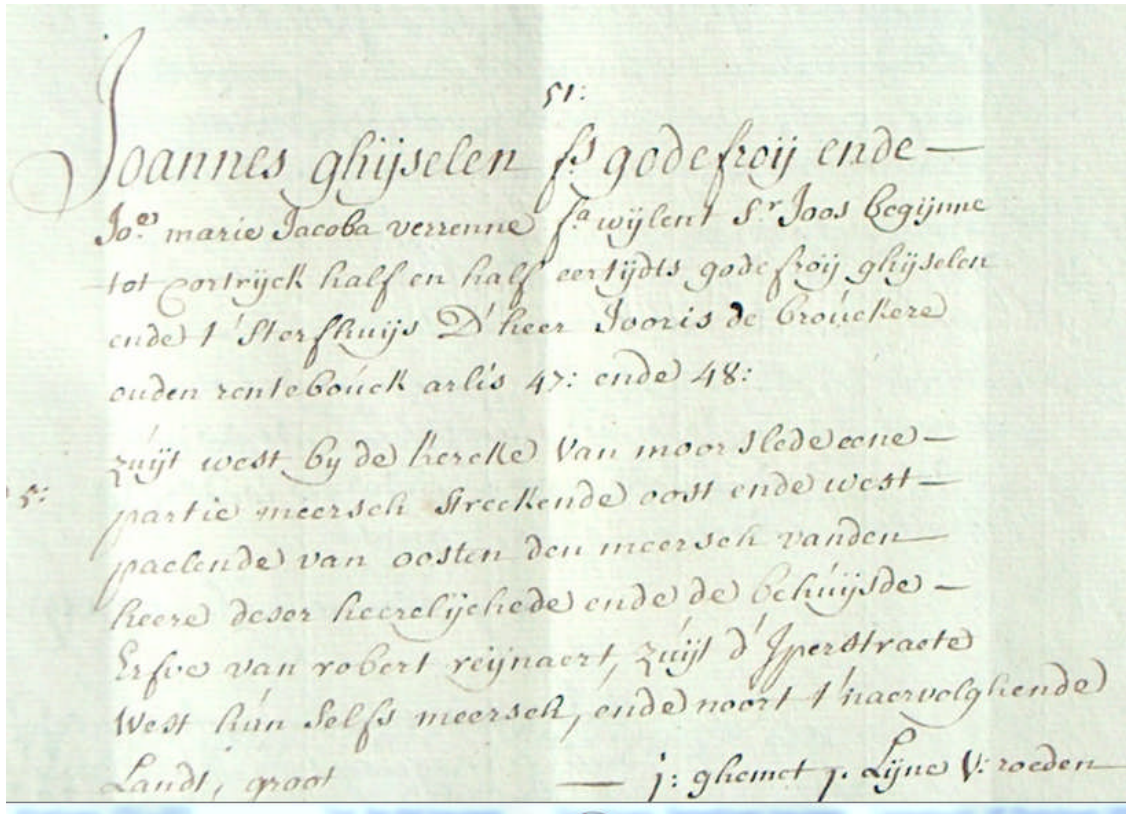 51:
Joannes ghijselen fs godefroij ende —
Joe marie Jacoba verrenne fa wijlent Sr Joos Begijnne
tot Cortrijck half en half eertijdts godefroij ghijselen
ende t'Sterfhuijs D'heer Jooris de brouckere
ouden rentebouck arlis 47: ende 48:
zuijt west by de kercke van moorslede eene —
5:
partie meersch streckende oost ende west —
paelende van oosten den meersch vanden —
heere deser heerelijchede ende de behuijsde —
Erfve van robert reijnaert, zuijt d'Jperstraete
West hun selfs meersch, ende noort t'naervolghende
Landt, groot — j: ghemet j. Lijne V: roeden —